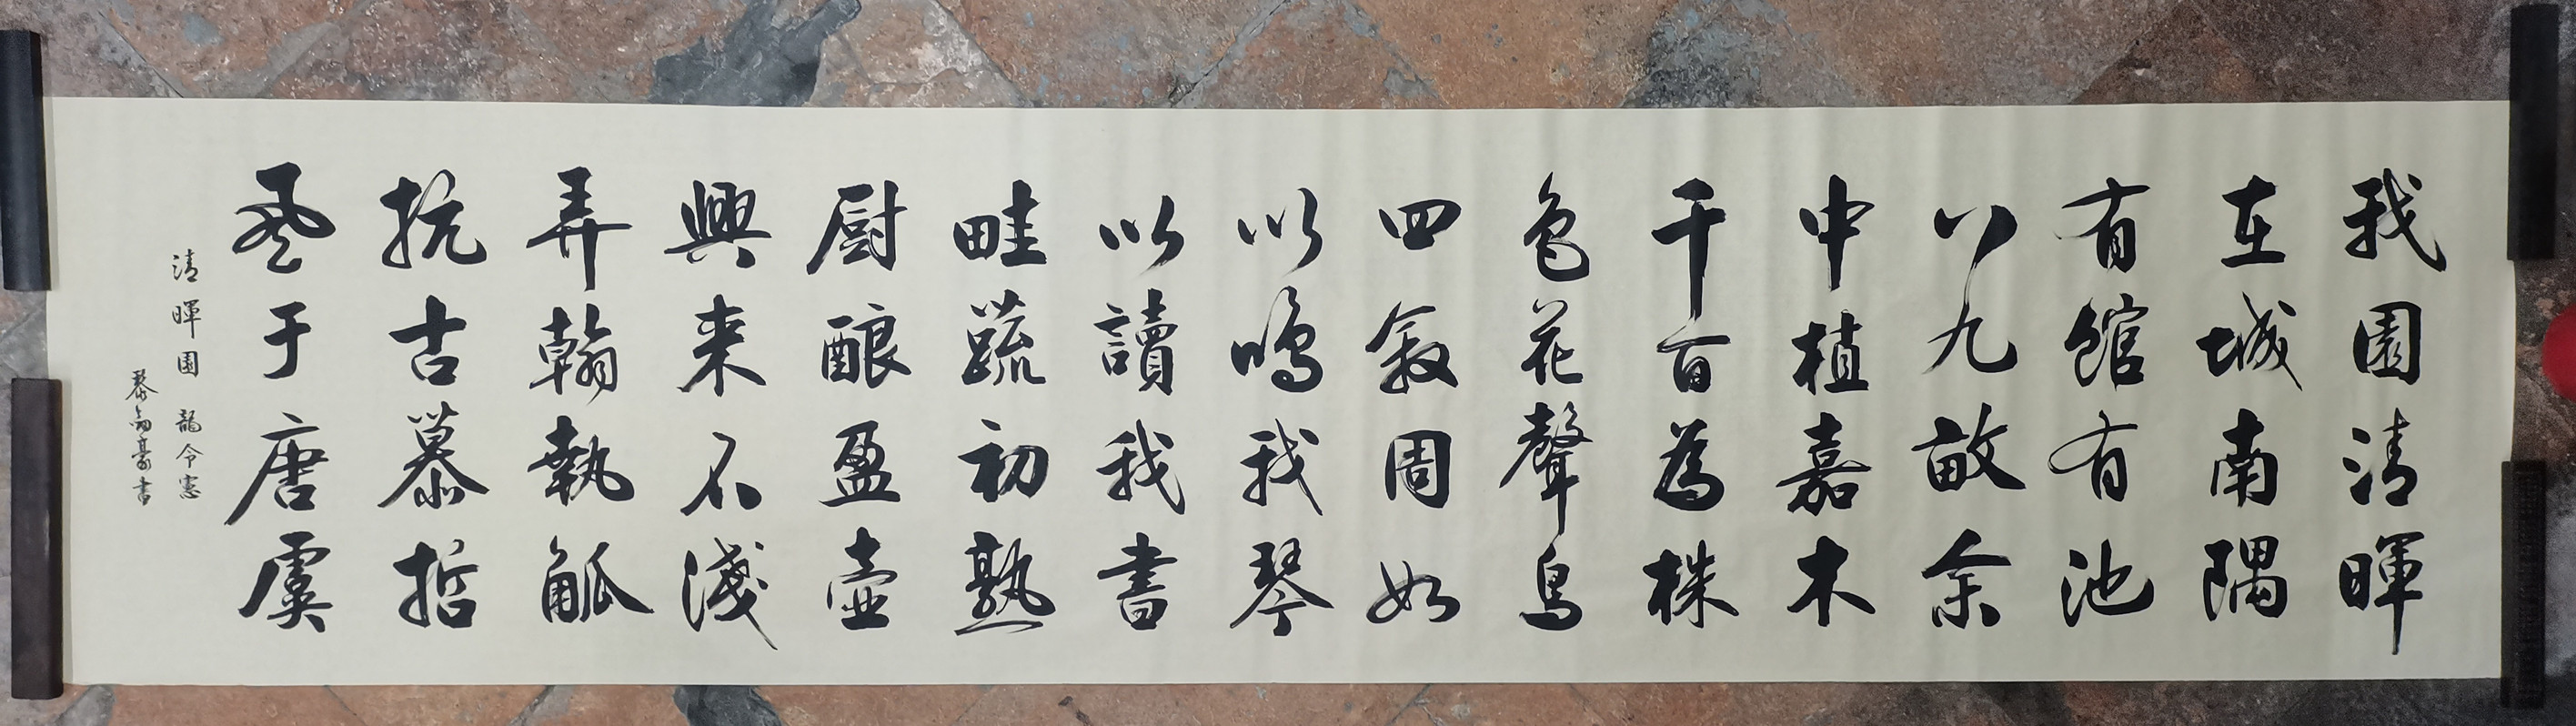 我園清暉
在城南隅
有館有池
八九畝余
中植嘉木
千百為株
色花聲鳥
四敘周如
以鳴我琴
以讀我書
畦蔬初熟
厨酿盈壺
興来不淺
弄翰執觚
抗古慕哲
風于唐虞
清暉園 龍令憲